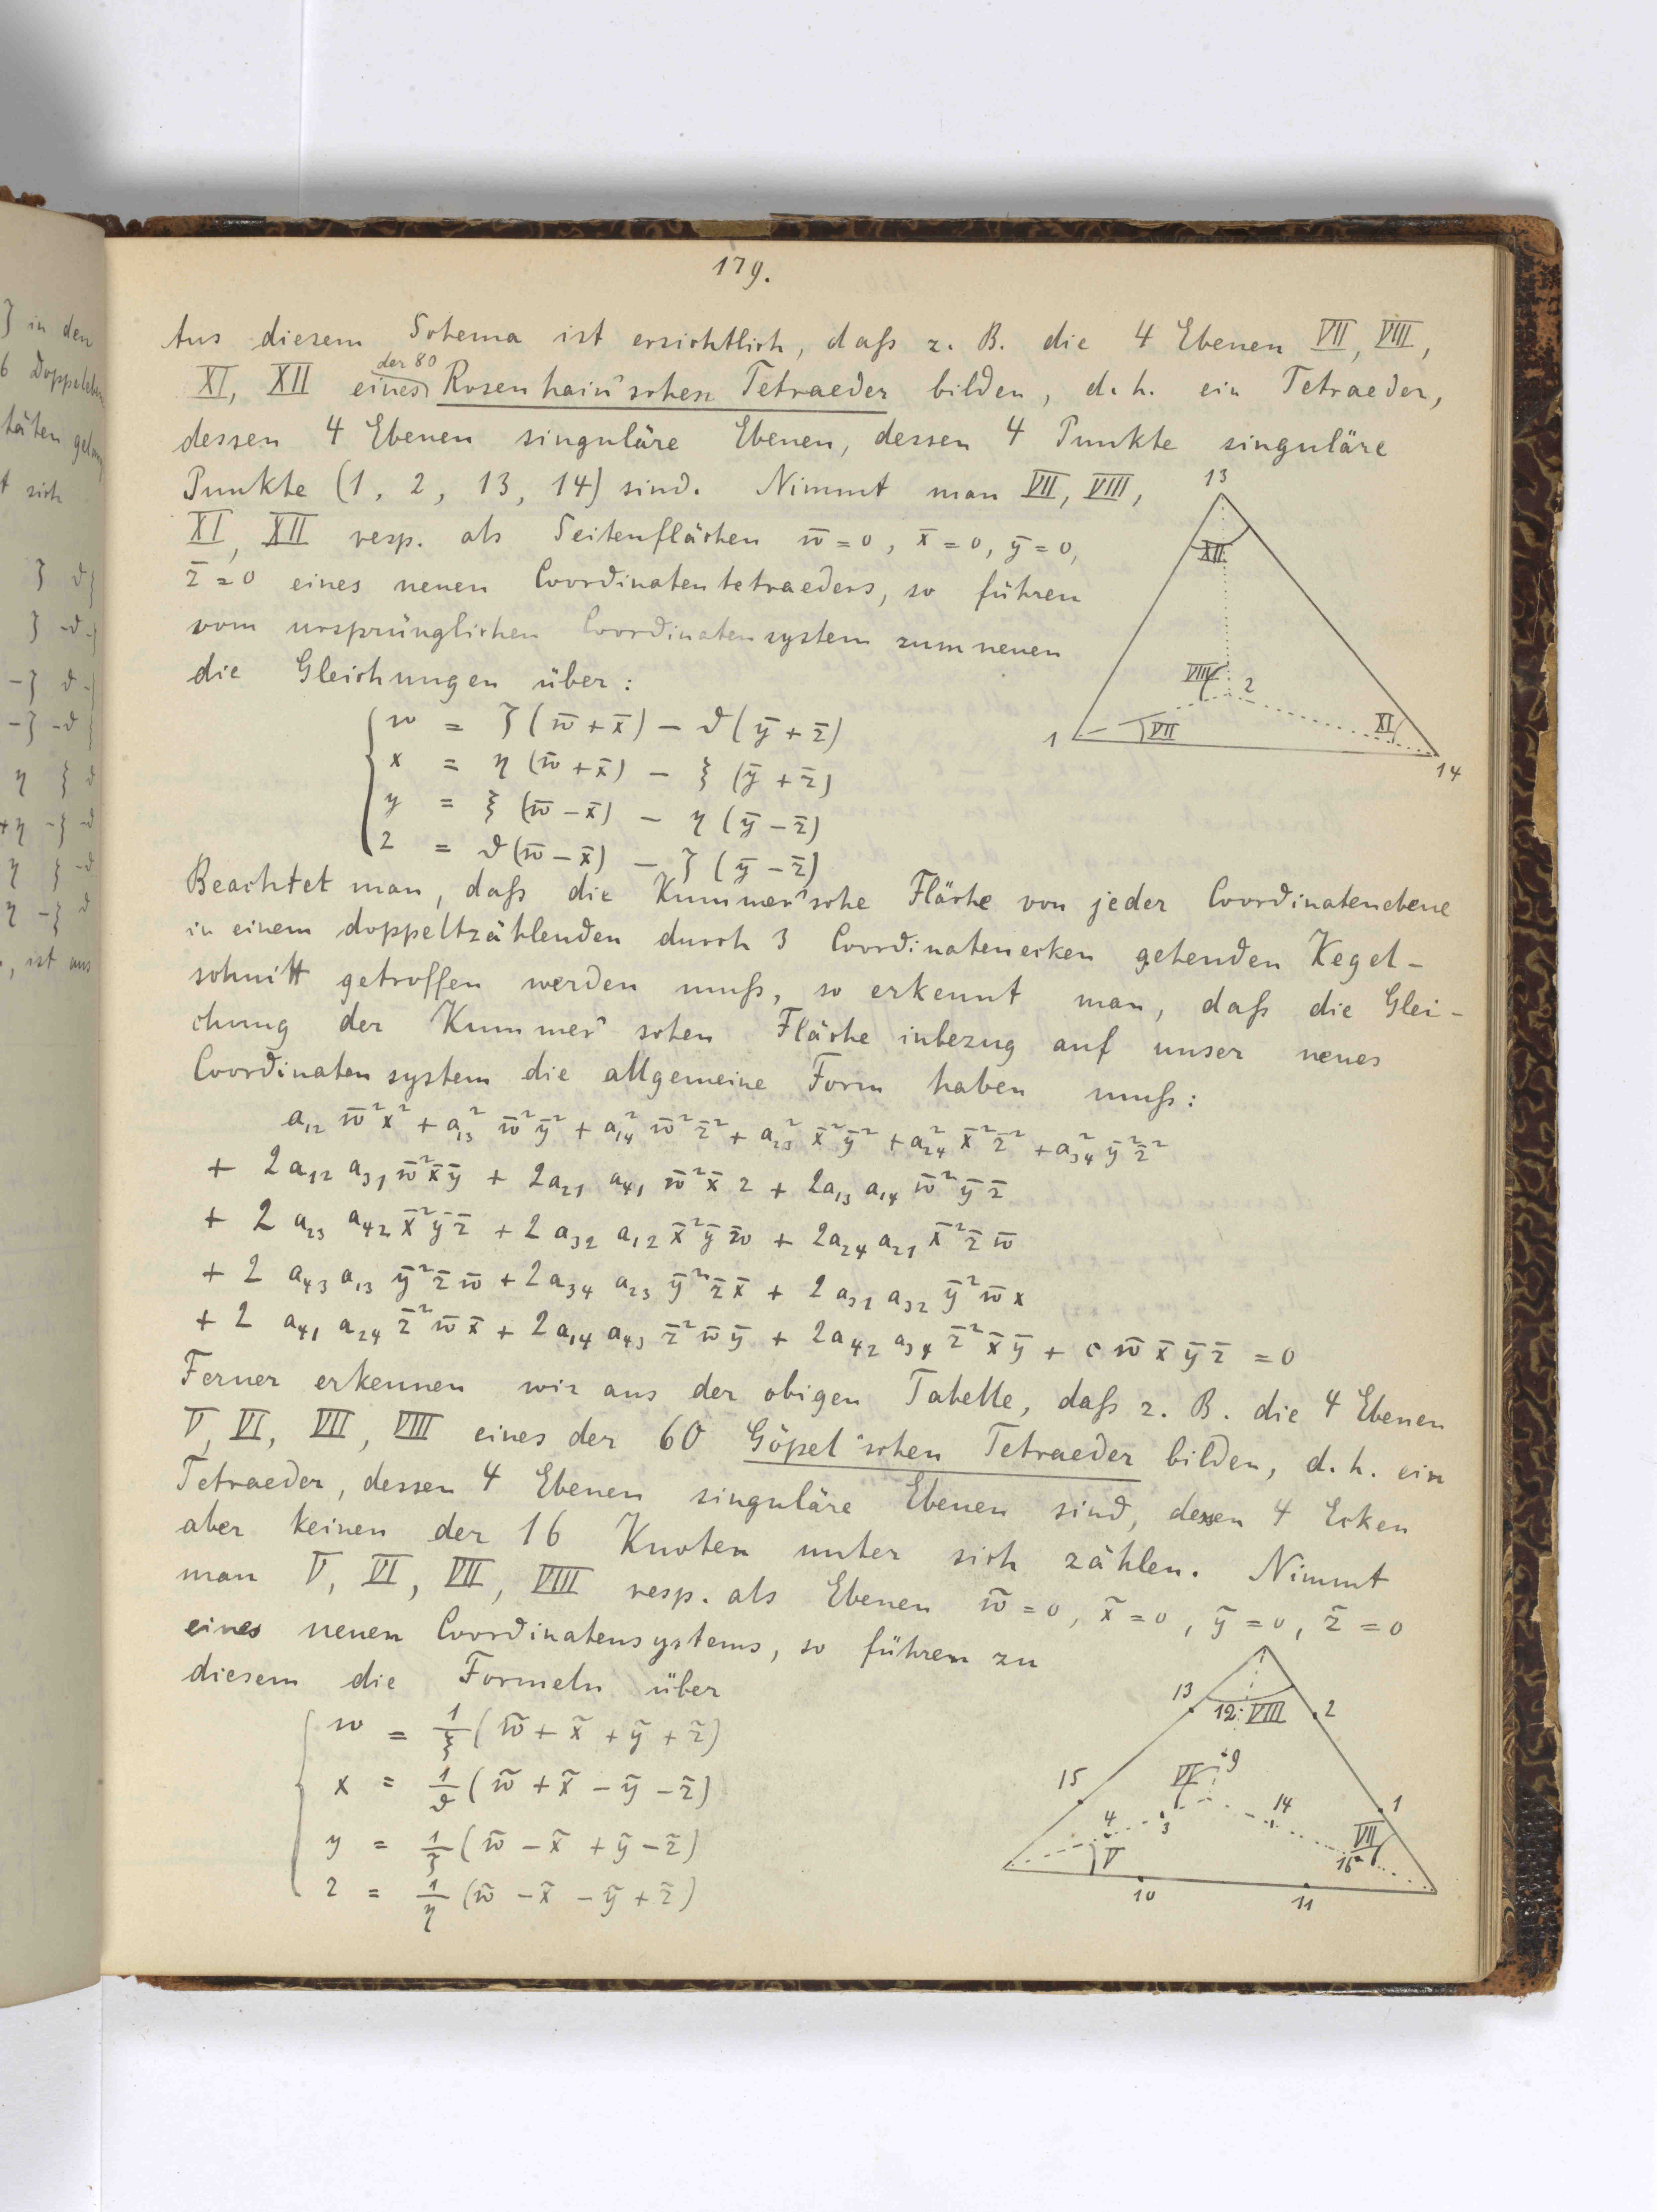 179.
Aus diesem Schema ist ersichtlich, daß z. B. die 4 Ebenen VII, VIII,
der 80
XI, XII eines Rosenhain'schen Tetraeder bilden, d. h. ein Tetraeder,
dessen 4 Ebenen singuläre Ebenen, dessen 4 Punkte singuläre
Punkte (1, 2, 13, 14) sind. Nimmt man VII, VIII,
XI, XII resp. als Seitenflächen w̄ = 0, x̄ = 0, ȳ = 0,
z̄ = 0 eines neuen Coordinatentetraeders, so führen
vom ursprünglichen Coordinatensystem zum neuen
die Gleichungen über:
13
XII
VIII
2
1
VII
XI
14
w = ζ(w̄ + x̄) − ϑ(ȳ + z̄)
x = η(w̄ + x̄) − ξ(ȳ + z̄)
y = ξ(w̄ − x̄) − η(ȳ − z̄)
z = ϑ(w̄ − x̄) − ζ(ȳ − z̄)
Beachtet man, daß die Kummer'sche Fläche von jeder Coordinatenebene
in einem doppeltzählenden durch 3 Coordinatenecken gehenden Kegel-
schnitt getroffen werden muß, so erkennt man, daß die Glei-
chung der Kummer'schen Fläche inbezug auf unser neues
Coordinatensystem die allgemeine Form haben muß:
a₁₂ w̄²x² + a₁₃² w̄²ȳ² + a₁₄² w̄²z̄² + a₂₃² x̄²ȳ² + a₂₄² x̄²z̄² + a₃₄² ȳ²z̄²
+ 2a₁₂ a₃₁ w̄²x̄ȳ + 2a₂₁ a₄₁ w̄²x̄z + 2a₁₃ a₁₄ w̄²ȳz̄
+ 2 a₂₃ a₄₂ x̄²ȳz̄ + 2 a₃₂ a₁₂ x̄²ȳw̄ + 2a₂₄ a₂₁ x̄²z̄w̄
+ 2 a₄₃ a₁₃ ȳ²z̄w̄ + 2a₃₄ a₂₃ ȳ²z̄x̄ + 2 a₃₁ a₃₂ ȳ²w̄x
+ 2 a₄₁ a₂₄ z̄²w̄x̄ + 2a₁₄ a₄₃ z̄²w̄ȳ + 2a₄₂ a₃₄ z̄²x̄ȳ + c w̄x̄ȳz̄ = 0
Ferner erkennen wir aus der obigen Tabelle, daß z. B. die 4 Ebenen
V, VI, VII, VIII eines der 60 Göpel'schen Tetraeder bilden, d. h. ein
Tetraeder, dessen 4 Ebenen singuläre Ebenen sind, dessen 4 Ecken
aber keinen der 16 Knoten unter sich zählen. Nimmt
man V, VI, VII, VIII resp. als Ebenen w̃ = 0, x̃ = 0, ỹ = 0, z̃ = 0
eines neuen Coordinatensystems, so führen zu
diesem die Formeln über
w = 1/ξ (w̃ + x̃ + ỹ + z̃)
x = 1/ϑ (w̃ + x̃ − ỹ − z̃)
y = 1/ζ (w̃ − x̃ + ỹ − z̃)
z = 1/η (w̃ − x̃ − ỹ + z̃)
13
12
VIII
2
9
VI
15
14
1
4
3
VII
V
16
10
11
ζ in den
6 Doppelebe
täten
t sich
ζ ϑ
ζ -ϑ
-ζ ϑ
-ζ -ϑ
η ξ ϑ
+η -ξ -ϑ
η ξ -ϑ
η -ξ ϑ
, ist aus